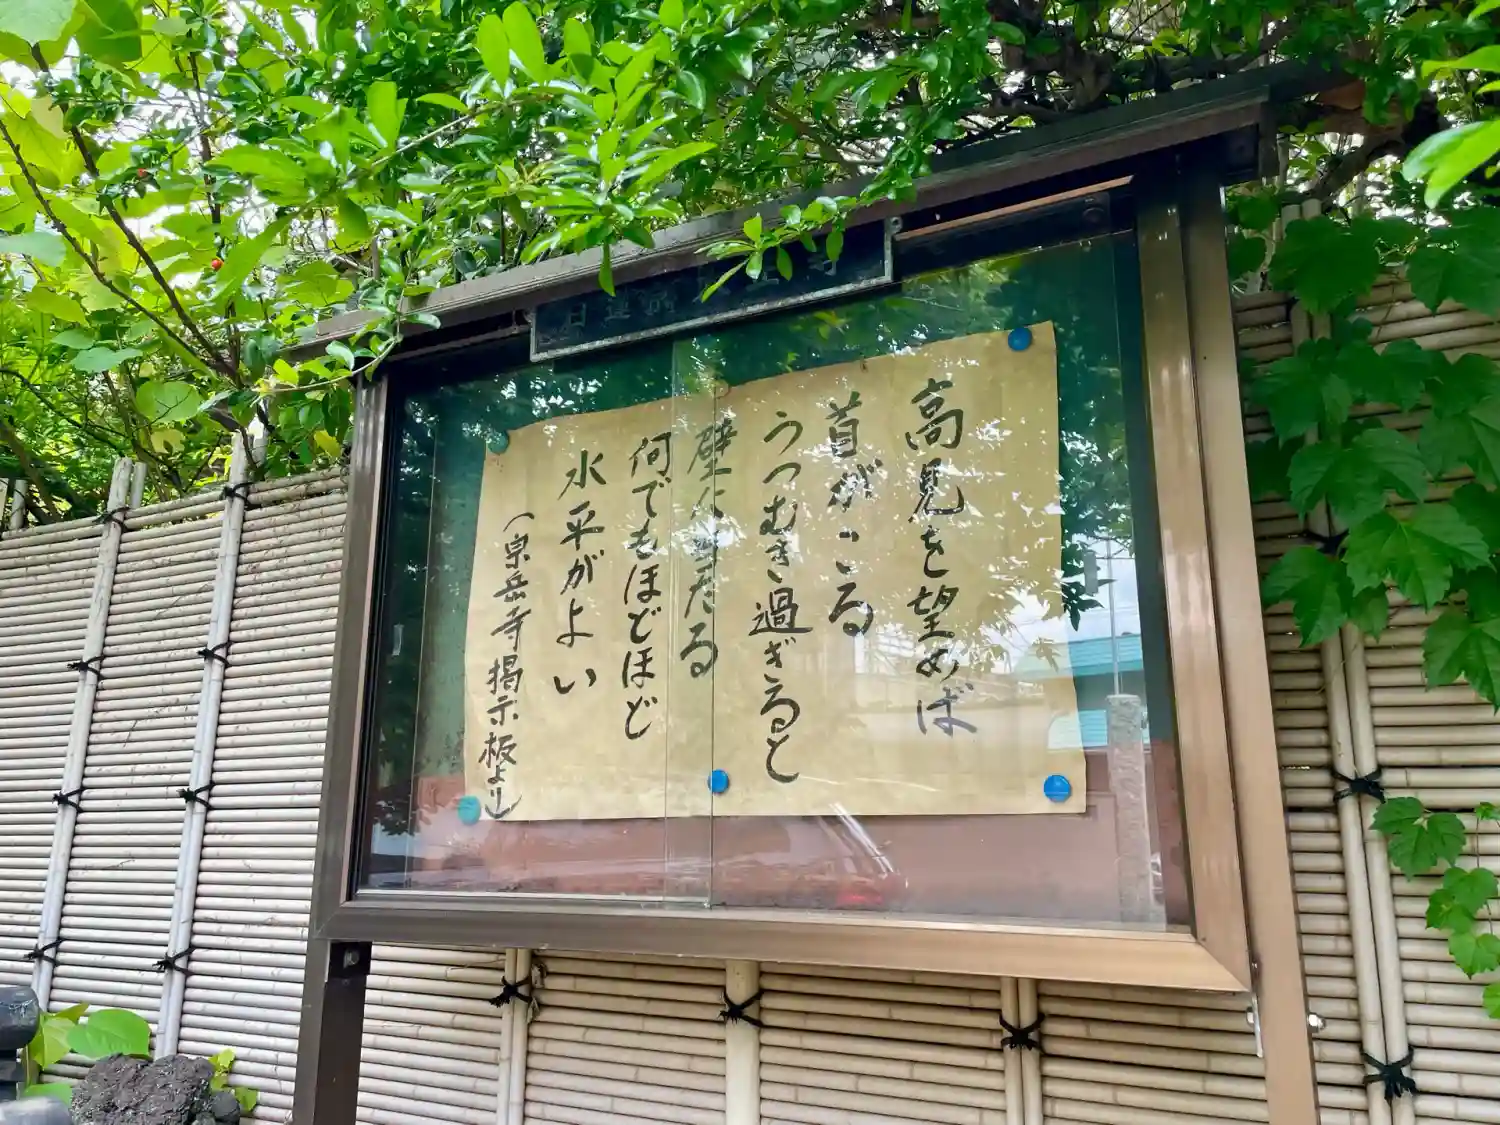 日蓮宗
高見を望めば
首がこる
うつむき過ぎると
壁に当たる
何でもほどほど
水平がよい
(泉岳寺掲示板より)